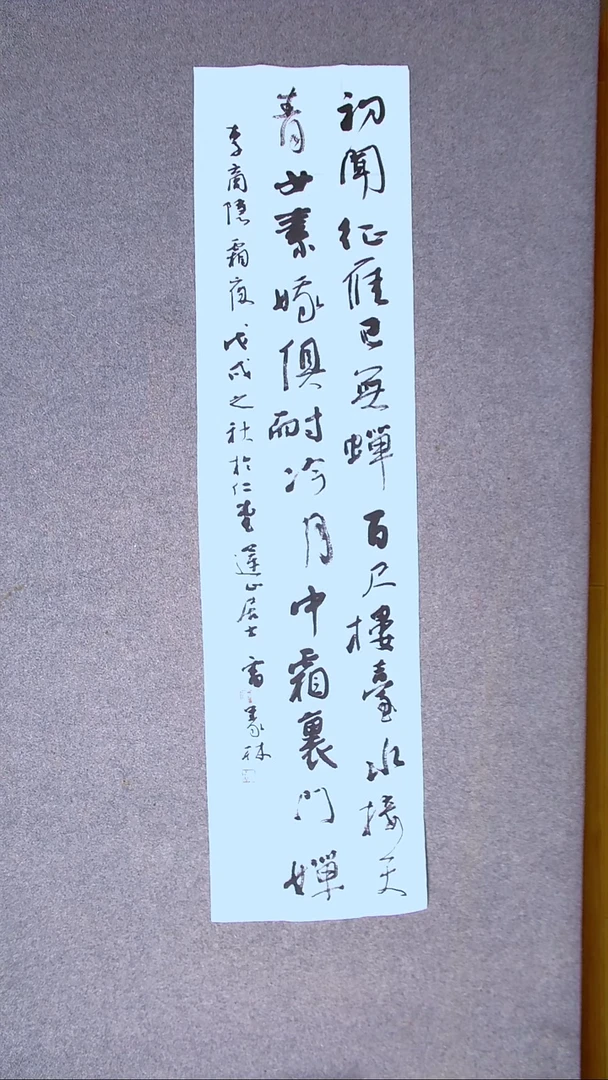 初聞征雁已無蟬百尺樓臺水接天
青女素娥俱耐冷月中霜裏鬥嬋
李商隱霜夜戊戌之秋於仁堂蓮山居士